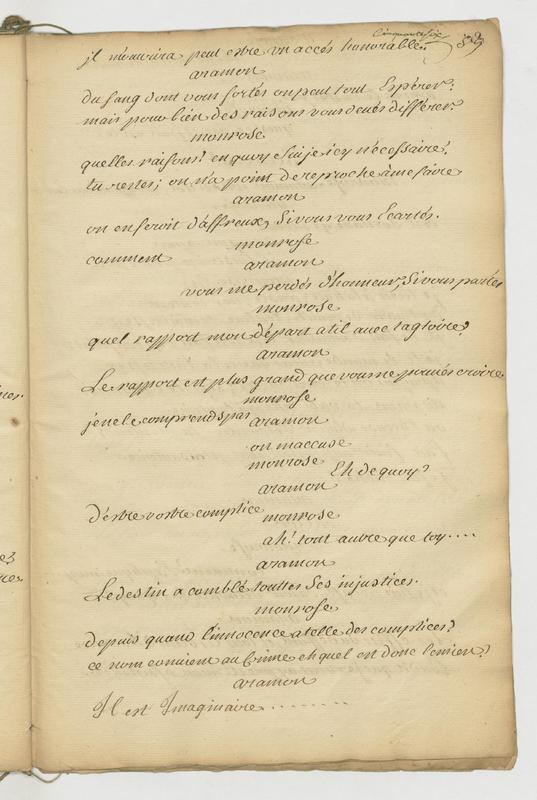 Cinquante six
jl m'ouvrira peut estre un accés honorable
aramon
du sang dont vous sortés on peut tout Espérer:
mais pour bien des raisons vous devés différer
monrose
quelles raisons! en quoy suis je icy nécessaire?
tu restes; on n'a point de reproche à me faire
aramon
on en feroit d'affreux, si vous vous Ecartés.
monrose
comment
aramon
vous me perdés d'honneur, si vous partés
monrose
quel rapport mon départ a til avec ta gloire?
aramon
Le rapport est plus grand que vous ne pouvés croire
monrose
je ne le comprends pas
aramon
on m'accuse
monrose
Eh de quoy?
aramon
d'estre vostre complice
monrose
ah! tout autre que toy....
aramon
Le destin a comblé touttes ses injustices.
monrose
depuis quand l'innocence a telle des complices?
ce nom convient au Crime eh quel est donc le mien?
aramon
Il est Imaginaire ........